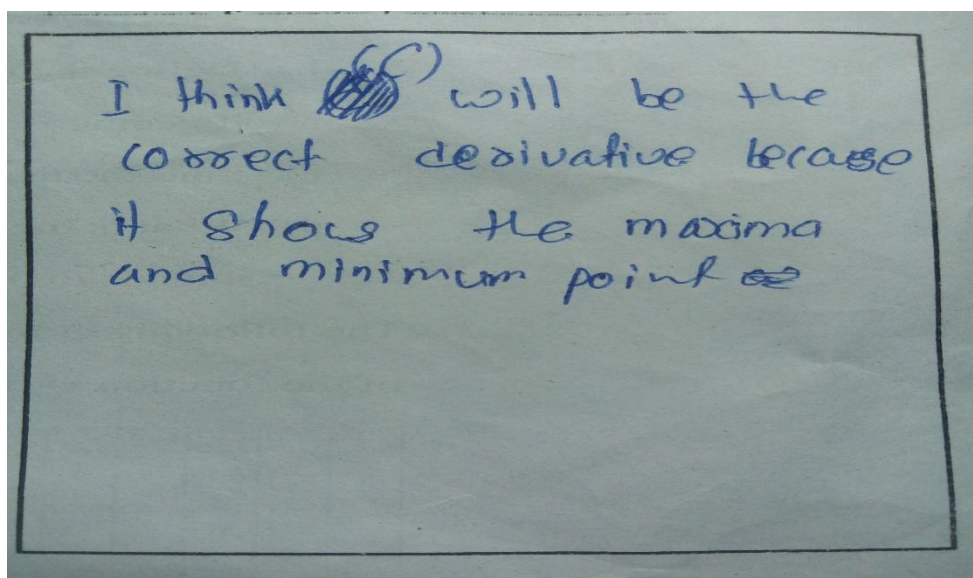 I think (c) will be the
correct derivative because
it shows the maxima
and minimum point